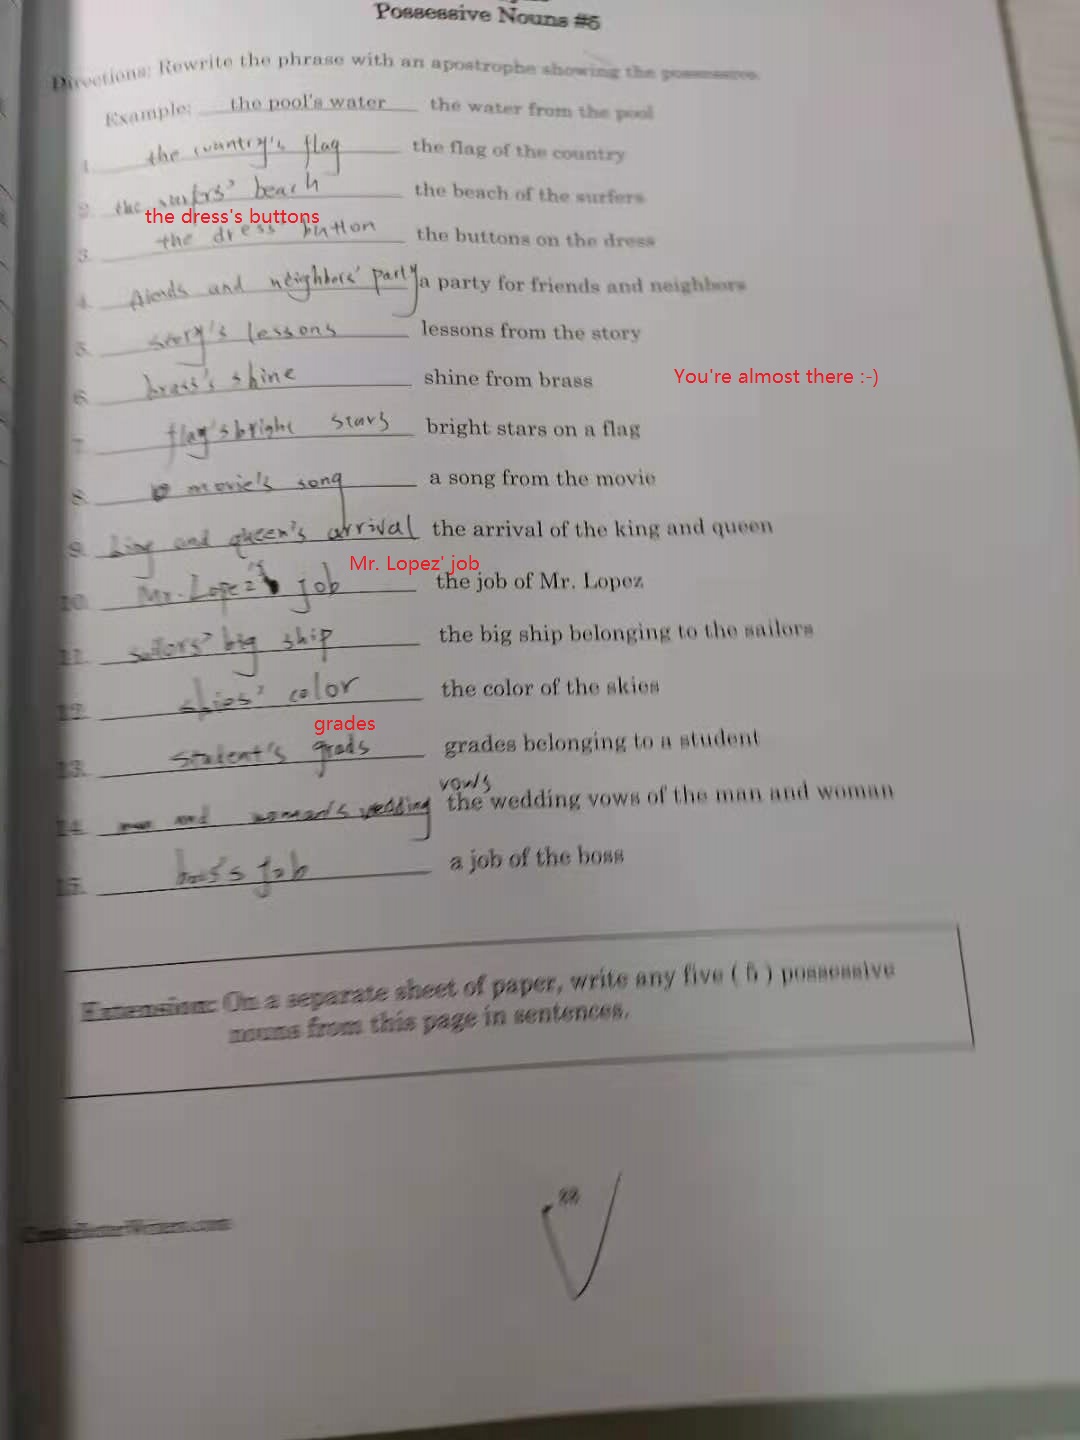 Possessive Nouns #5
Directions: Rewrite the phrase with an apostrophe showing the possessive.
Example: the pool's water the water from the pool
1. the country's flag the flag of the country
2. the surfers' beach the beach of the surfers
the dress's buttons
3. the dress' button the buttons on the dress
4. friends and neighbors' party a party for friends and neighbors
5. story's lessons lessons from the story
6. brass's shine shine from brass You're almost there :-)
7. flag's bright stars bright stars on a flag
8. movie's song a song from the movie
9. king and queen's arrival the arrival of the king and queen
Mr. Lopez' job
10. Mr. Lopez's job the job of Mr. Lopez
11. sailors' big ship the big ship belonging to the sailors
12. skies' color the color of the skies
grades
13. student's grads grades belonging to a student
vows
14. man and woman's wedding the wedding vows of the man and woman
15. boss's job a job of the boss
Extension: On a separate sheet of paper, write any five ( 5 ) possessive
nouns from this page in sentences.